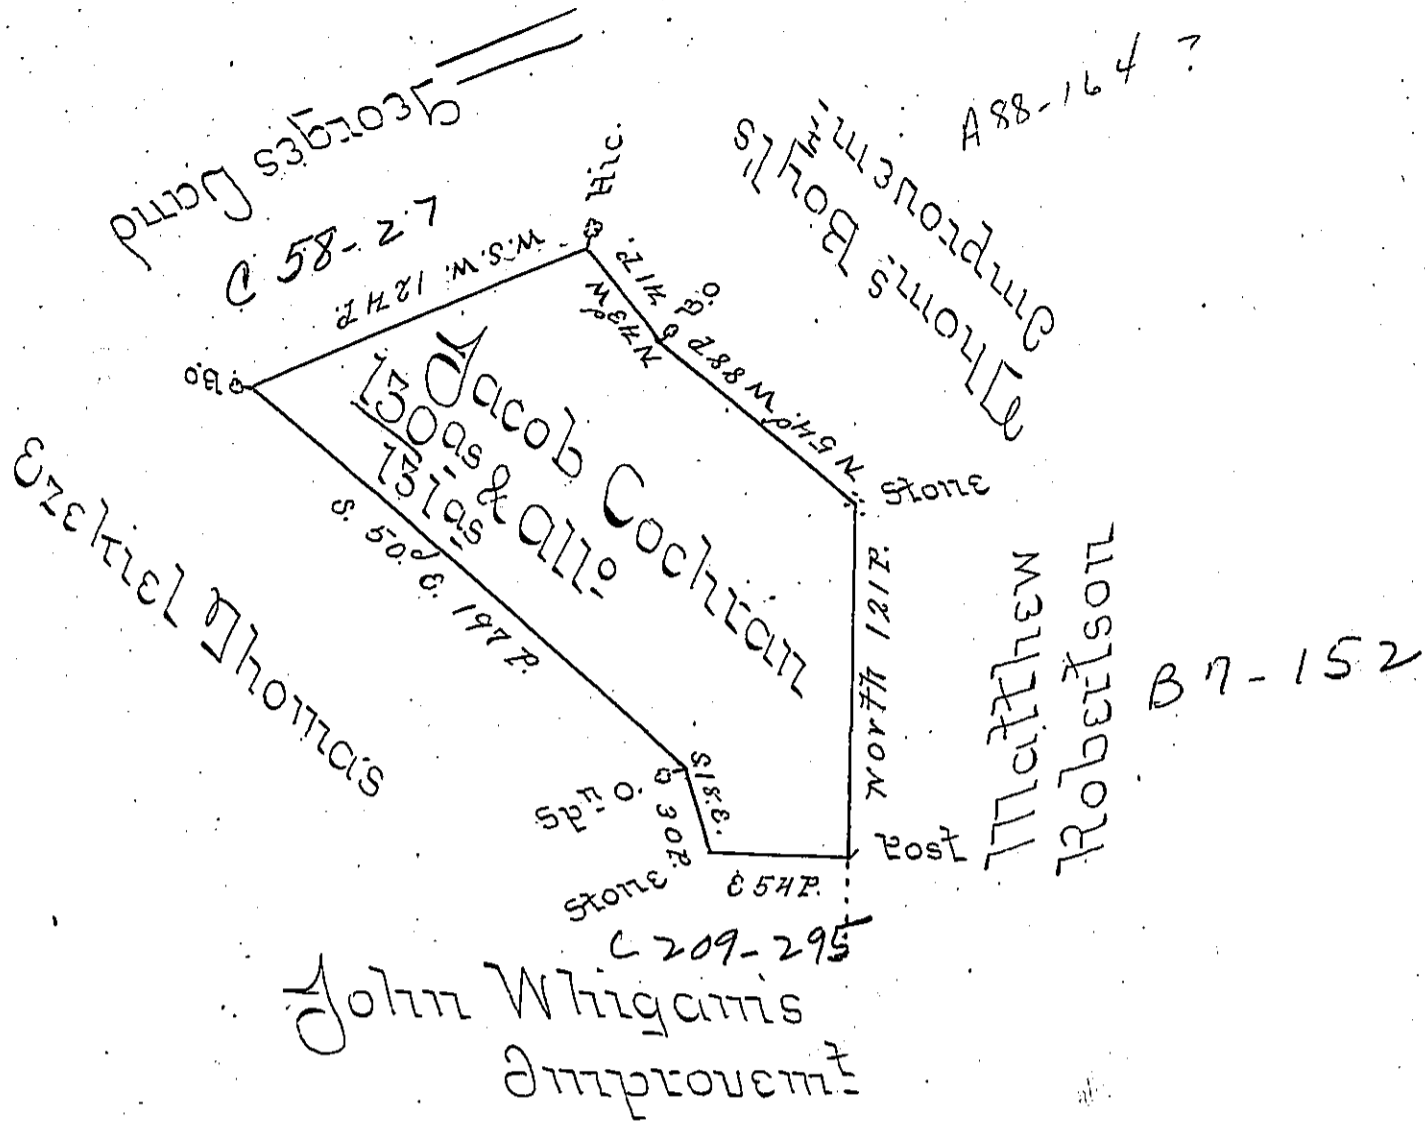 Georges Land
C 58-27
A 88-164 ?
Thomas Boyl's
Improvem:t
Hic.
W.S.W. 124 P.
41 P.
N 43d W
O.
N 54d. W 88 P
B.O
Jacob Cochran
130 as & all:o
131 as
Stone
S. 50.d E. 197 P.
Ezekiel Thomas
North 121 P.
Matthew
Robertson
B 7-152
Sp:n O. ds
S 18. E.
30 P.
Stone
E 54 P.
Post
C 209-295
John Whigam's
Improvem:t